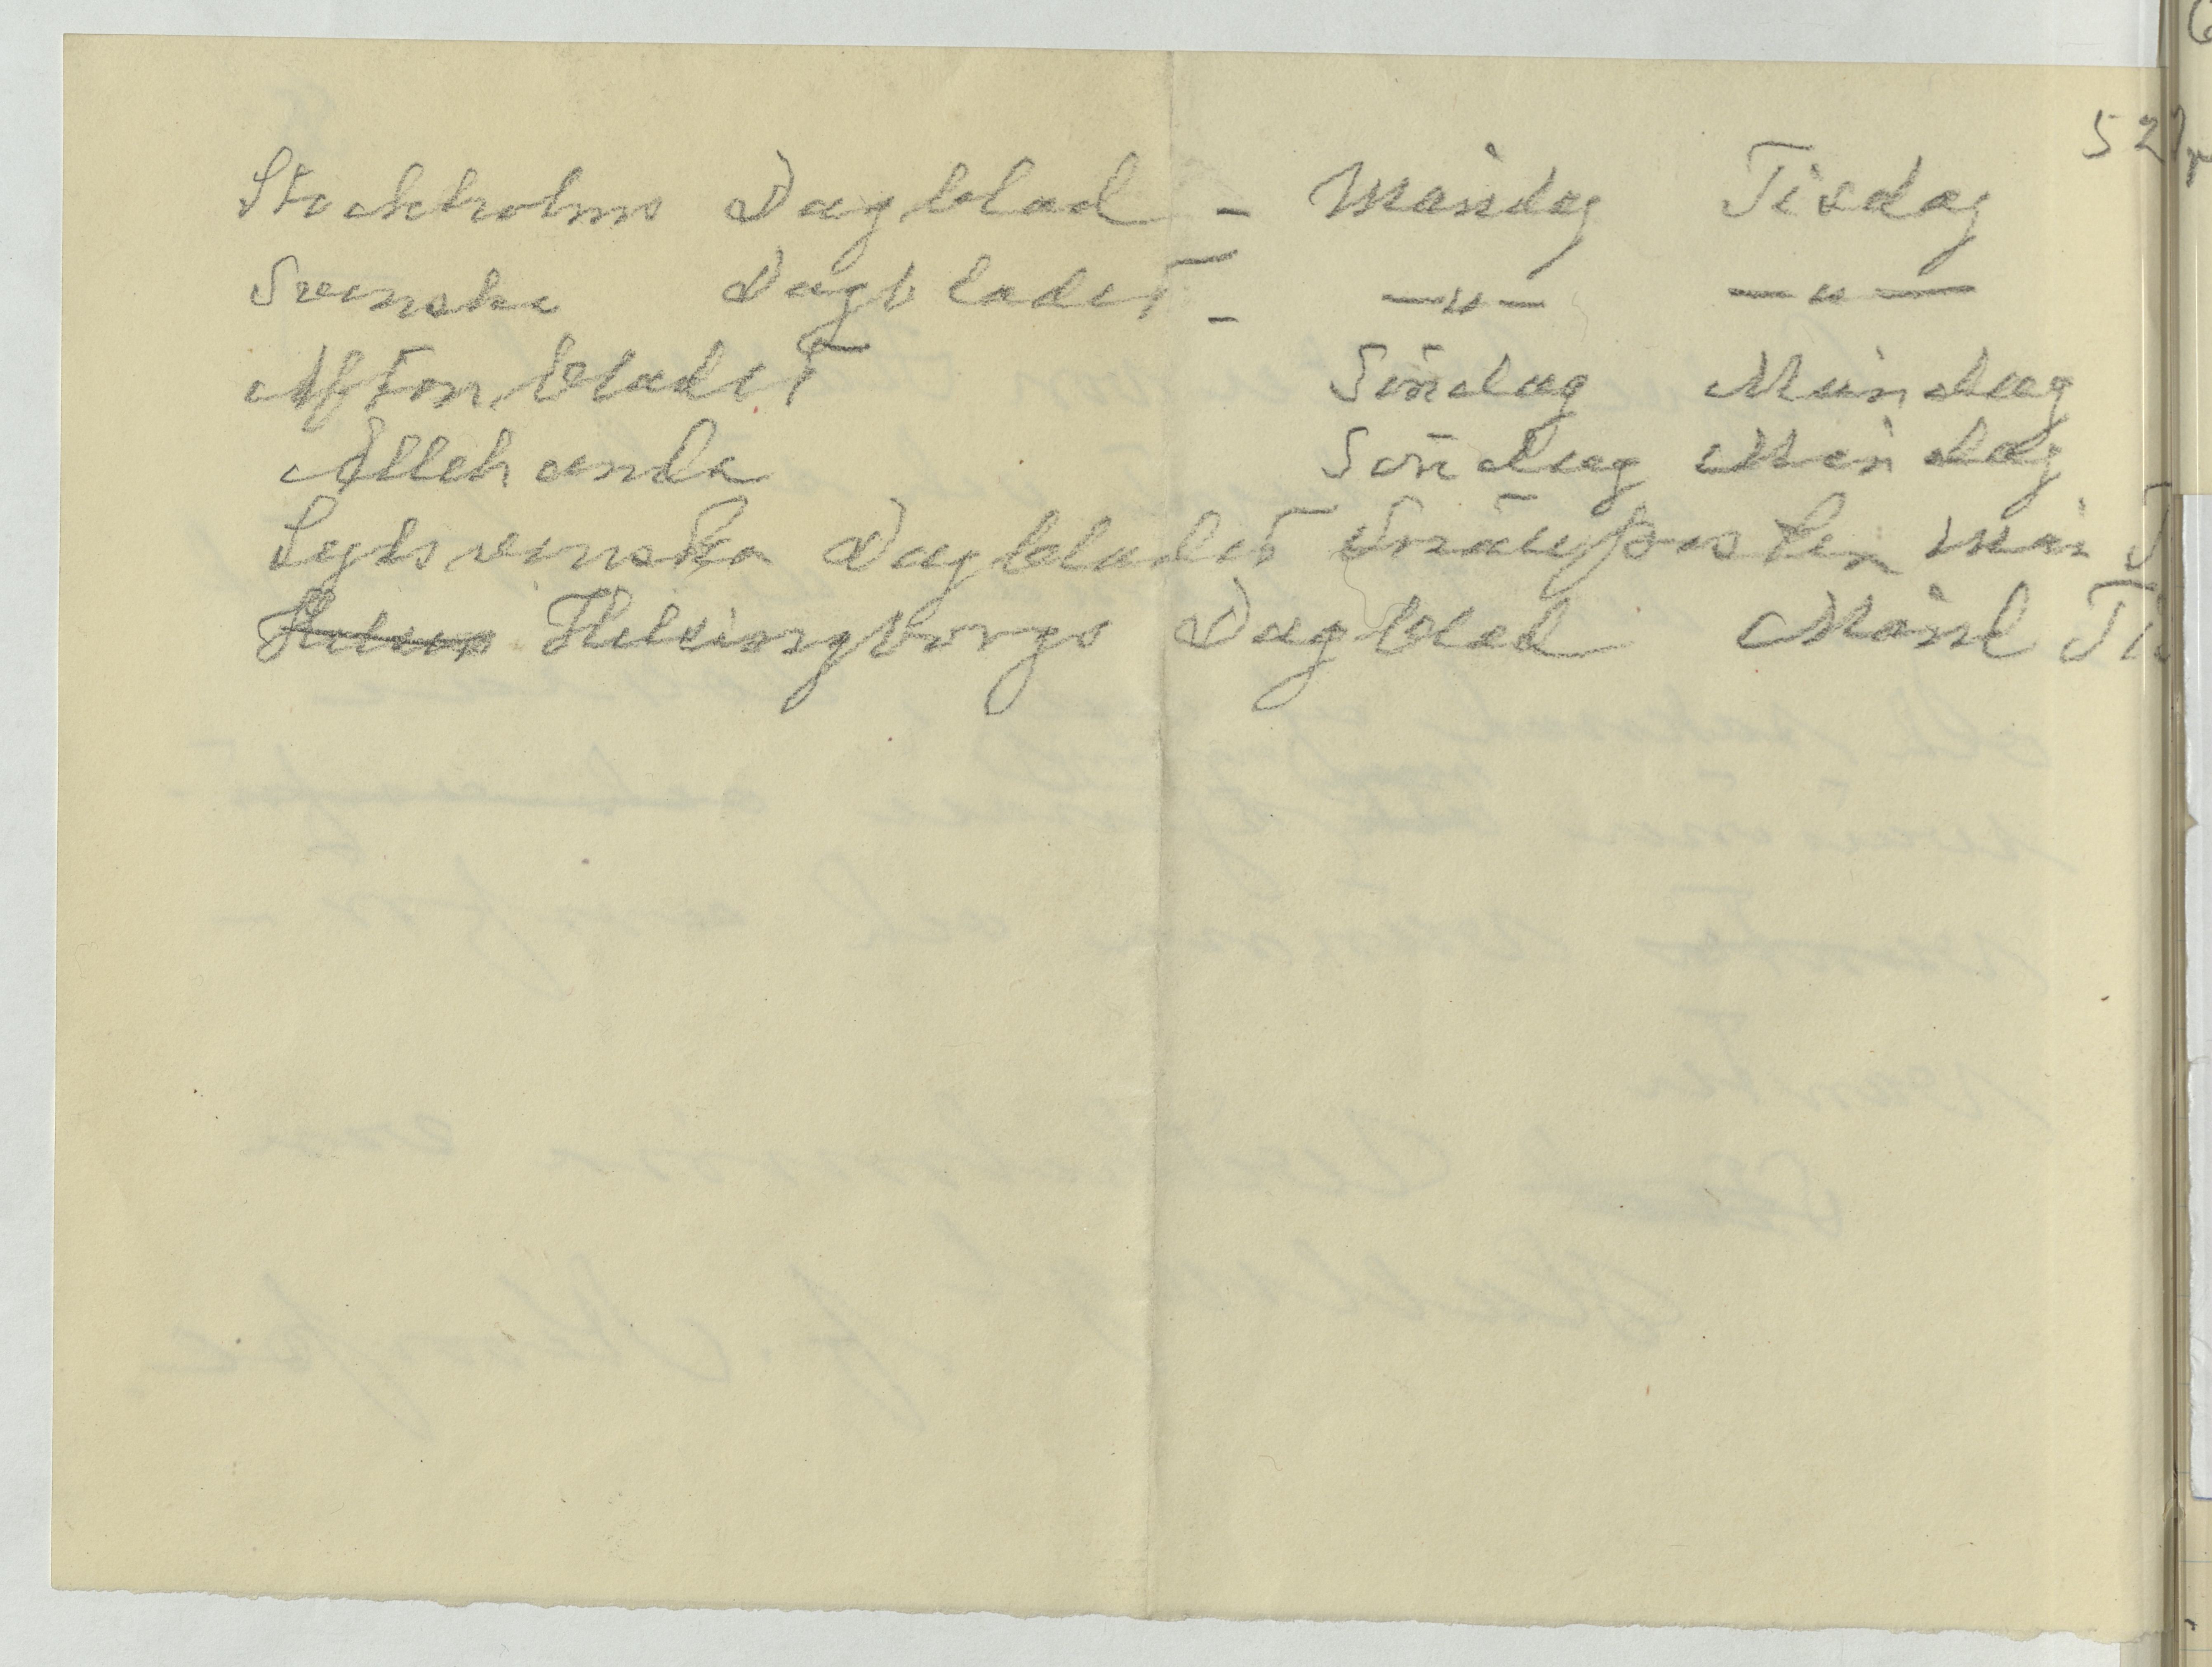 52r
Stockholms Dagblad - Måndag Tisdag
Svenska Dagbladet - —"— —"—
Aftonbladet Söndag Måndag
Allehanda Söndag Måndag
Sydsvenska Dagbladet Snällposten Mån T
Helsingborgs Dagblad Månd Ti